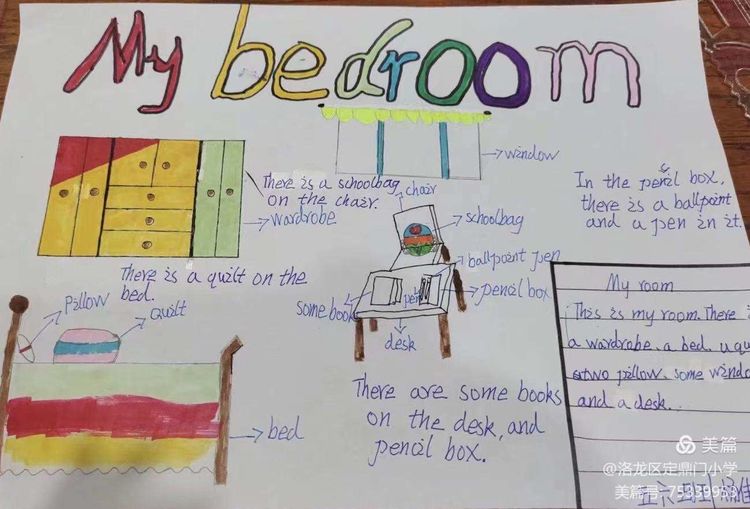 My bedroom
window
There is a schoolbag
on the chair.
wardrobe
chair
schoolbag
ballpoint pen
pencil box
In the pencil box,
there is a ballpoint
and a pen in it.
There is a quilt on the
bed.
pillow
quilt
some book
pen
desk
bed
There are some books
on the desk, and
pencil box.
My room
This is my room. There
a wardrobe. a bed. a qu
two pillow. some windo
and a desk.
美篇
@洛龙区定鼎门小学
美篇号:75339953
五六班